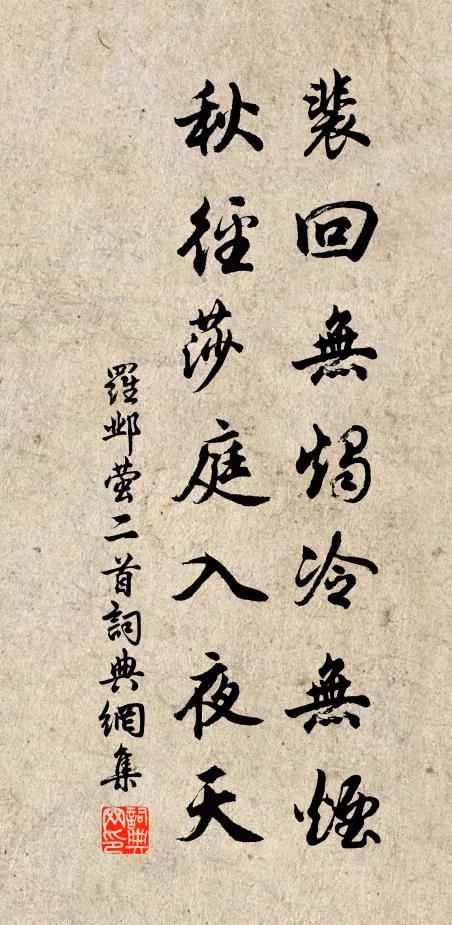 裴回無燭冷無煙
秋徑莎庭入夜天
羅鄴萤二首詞典網集
詞典网印